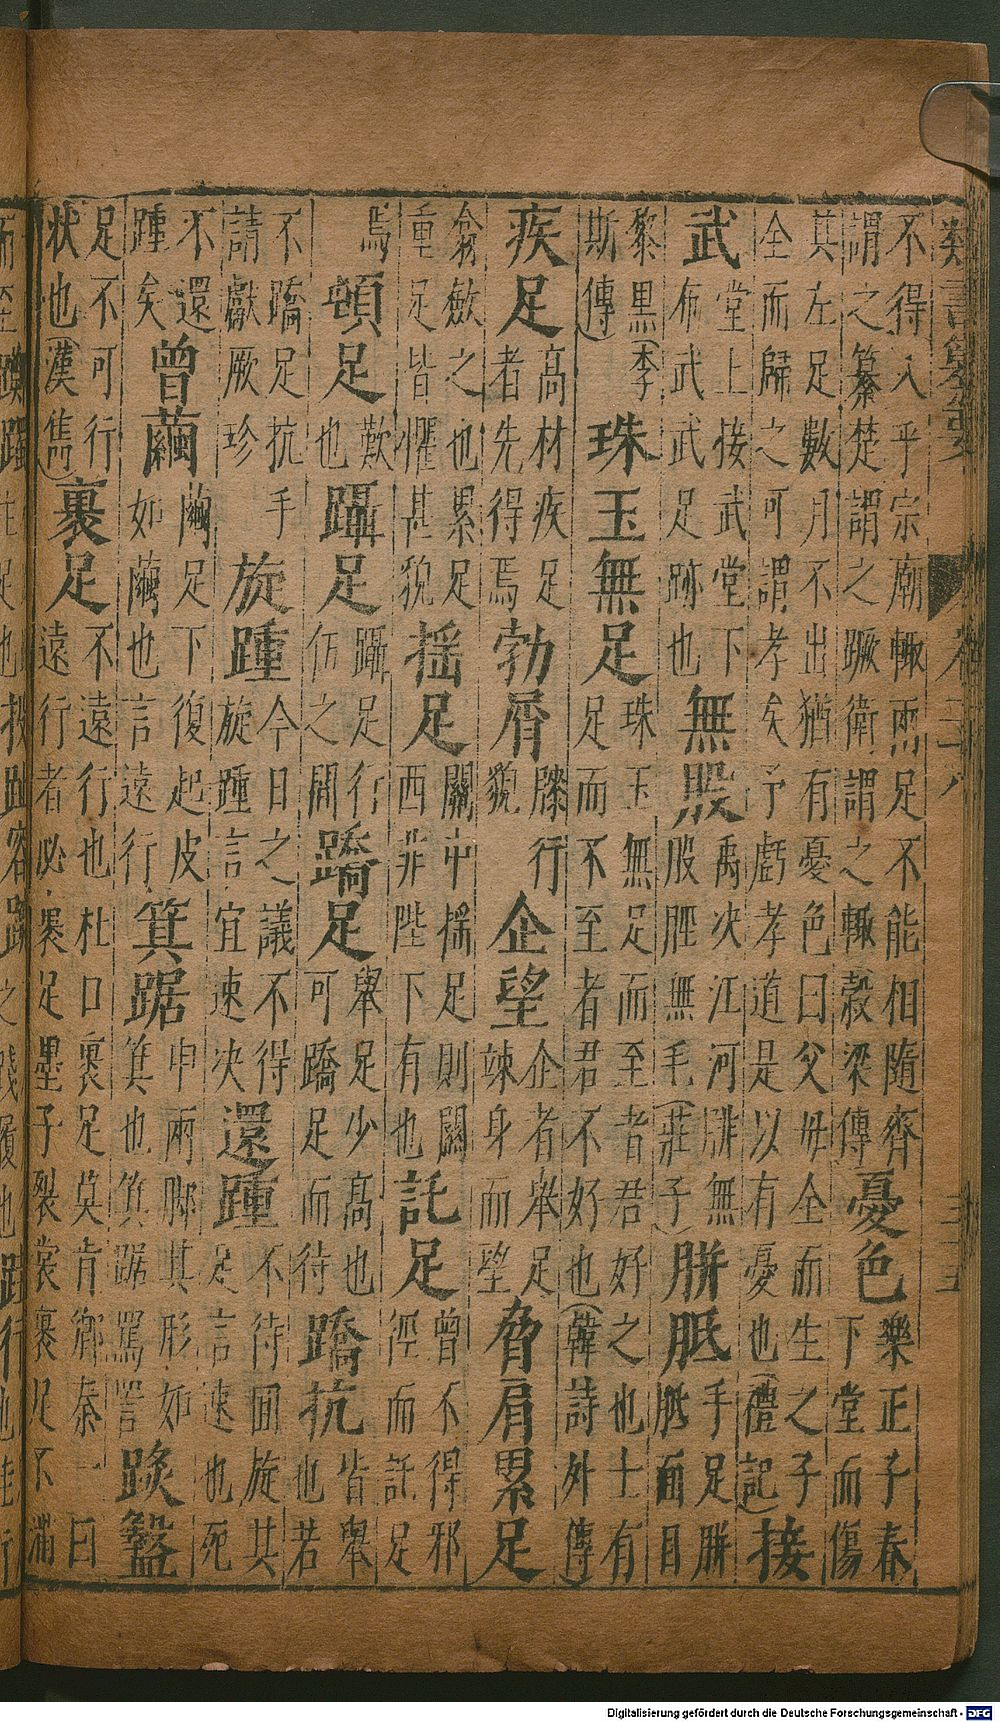 類書纂要 卷二十八
不得入乎宗廟輙兩足不能相隨齊謂之綦楚謂之蹶衛謂之輙穀梁傳憂色樂正子春下堂而傷
其左足數月不出猶有憂色曰父母全而生之子全而歸之可謂孝矣予虧孝道是以有憂也(禮記)接
武堂上接武堂下布武武足跡也無股禹决江河腓無股脛無毛(莊子)胼胝手足胼胝面目
黎黑(李斯傳)珠玉無足珠玉無足而至者君好之也士有足而不至者君不好也(韓詩外傳)
疾足高材疾足者先得焉勃屑膝行貌企望企者舉足竦身而望脅肩累足
翕斂之也累足重足皆懼甚貌揺足關中揺足則關西非陛下有也託足曾不得邪徑而託足
焉頓足歎也躡足躡足行伺之間蹻足舉足少高也可蹻足而待蹻抗皆舉也若
不蹻足抗手請獻厥珍旋踵今日之議不得旋踵言宜速决還踵不待回旋其足言速也死
不還踵矣曾繭繭足下復起皮如繭也言遠行箕踞申兩脚其形如箕也箕踞罵詈𨂂盭
足不可行狀也(漢雋)裹足不遠行也杜口裹足莫肯鄉秦一曰遠行者必裹足墨子裂裳裹足不滿
Digitalisierung gefördert durch die Deutsche Forschungsgemeinschaft - DFG